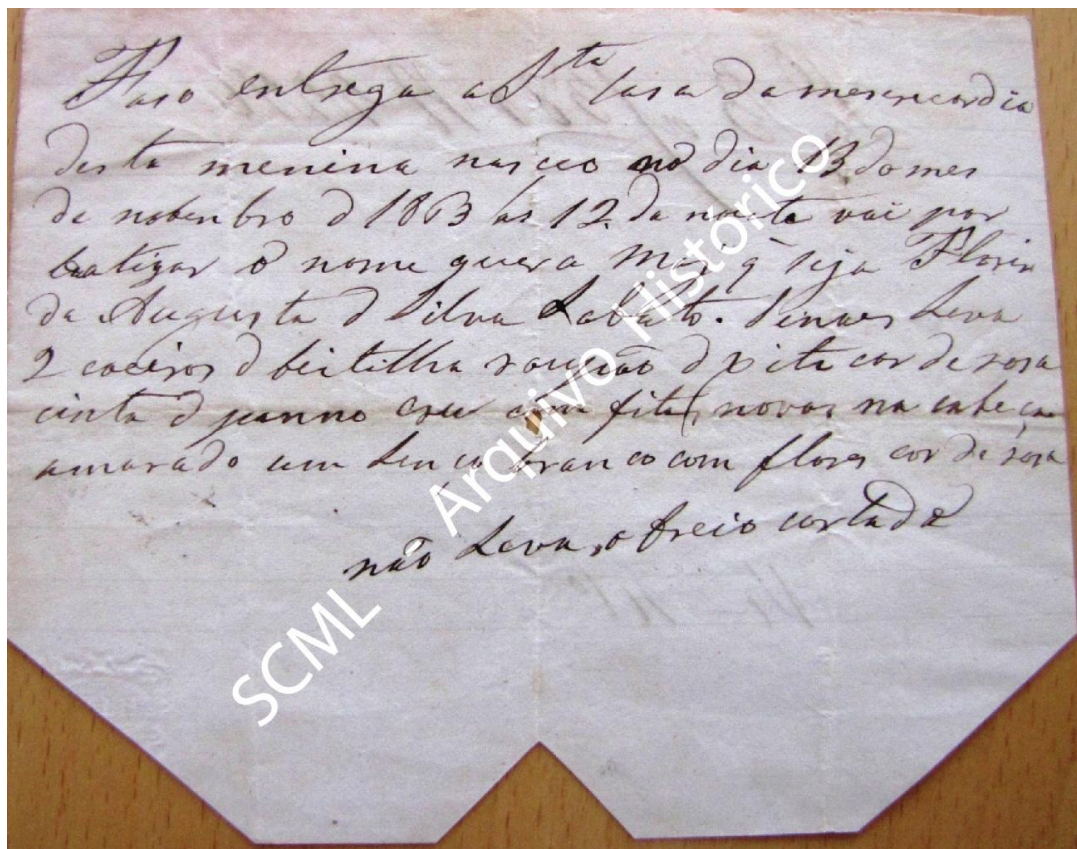 Faso entrega a Sta Casa da meserecordia
desta menina nasceo no dia 13 do mes
de nobenbro d 1863 as 12 da noute vai por
batizar o nome quer a Mai q seja Florin
da Augusta d Silva Lobato. Sinaes Leva
2 coeiros d beitilha roupão d xita cor de rosa
cinta d panno cru com fitas novas na cabeça
amarado um Lenco branco com flores cor de rosa
não Leva o freio cortado
SCML Arquivo Histórico